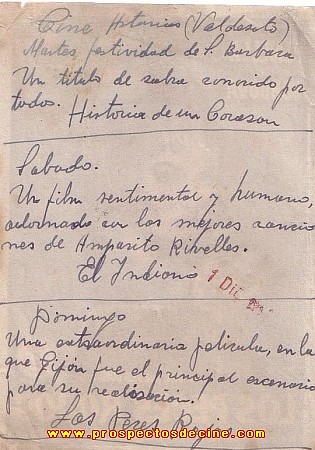 Cine Asturias (Valdesoto)
Martes, festividad de S. Barbara
Un titulo de sobra conocido por
todos.
Historia de un Corazon
Sabado.
Un film sentimental y humano,
adornado con las mejores cancio
nes de Amparito Rivelles.
El Indiano
1 DIC
Domingo
Una extraordinaria pelicula, en la
que Gijón fue el principal escenario
para su realisación.
Los Peces Rojos
www.prospectosdecine.com